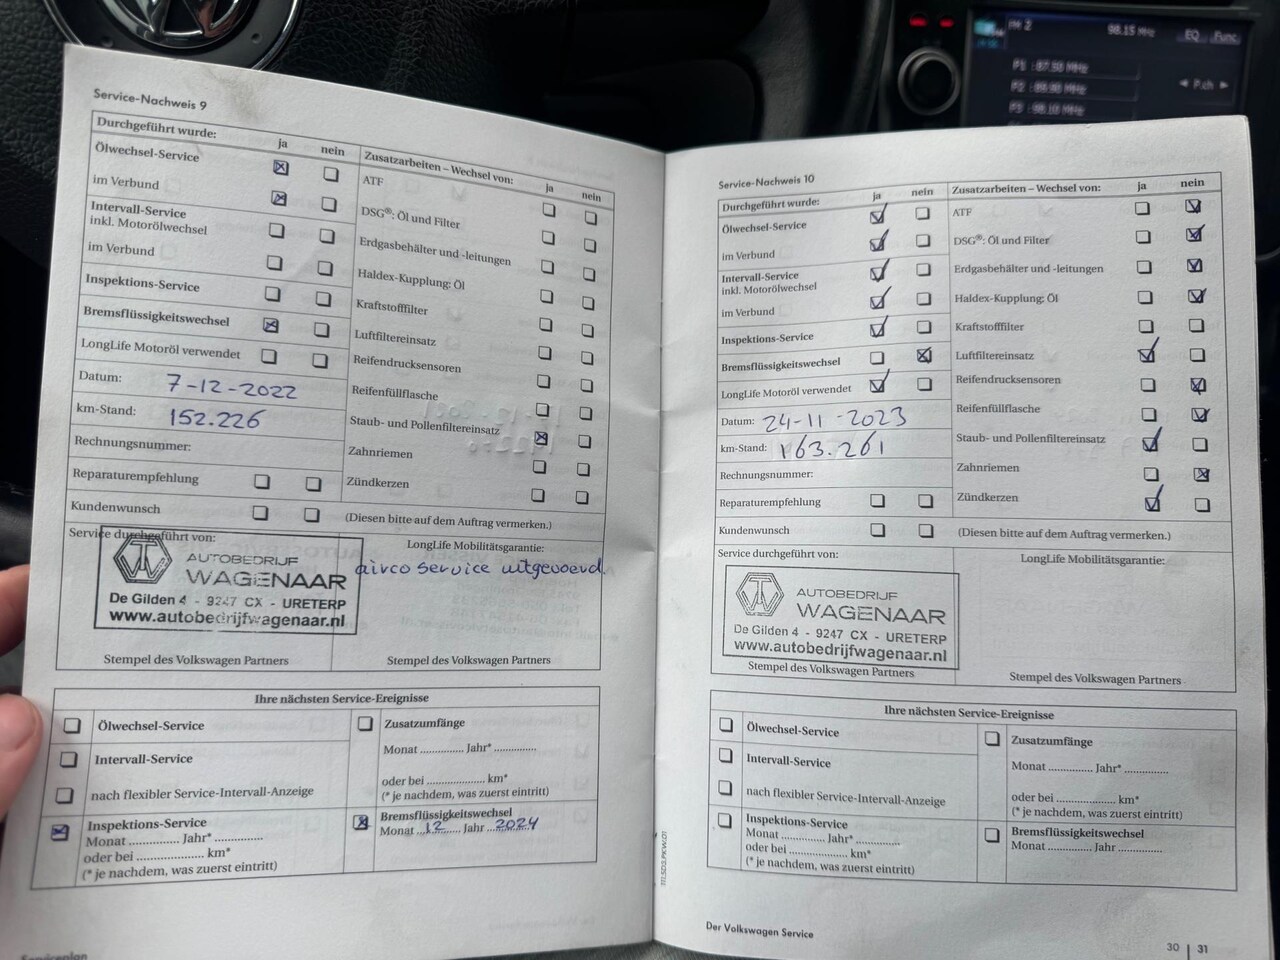 Service-Nachweis 9
Durchgeführt wurde: ja nein
Ölwechsel-Service
im Verbund
Intervall-Service
inkl. Motorölwechsel
im Verbund
Inspektions-Service
Bremsflüssigkeitswechsel
LongLife Motoröl verwendet
Datum: 7-12-2022
km-Stand: 152.226
Rechnungsnummer:
Reparaturempfehlung
Kundenwunsch
Zusatzarbeiten – Wechsel von: ja nein
ATF
DSG®: Öl und Filter
Erdgasbehälter und -leitungen
Haldex-Kupplung: Öl
Kraftstofffilter
Luftfiltereinsatz
Reifendrucksensoren
Reifenfüllflasche
Staub- und Pollenfiltereinsatz
Zahnriemen
Zündkerzen
(Diesen bitte auf dem Auftrag vermerken.)
Service durchgeführt von:
AUTOBEDRIJF
WAGENAAR
De Gilden 4 - 9247 CX - URETERP
www.autobedrijfwagenaar.nl
Stempel des Volkswagen Partners
LongLife Mobilitätsgarantie:
airco service uitgevoerd.
Stempel des Volkswagen Partners
Ihre nächsten Service-Ereignisse
Ölwechsel-Service
Intervall-Service
nach flexibler Service-Intervall-Anzeige
Inspektions-Service
Monat ............... Jahr* ...............
oder bei ..................... km*
(* je nachdem, was zuerst eintritt)
Zusatzumfänge
Monat .............. Jahr* ..............
oder bei .................... km*
(* je nachdem, was zuerst eintritt)
Bremsflüssigkeitswechsel
Monat ...12........ Jahr ...2024
Serviceplan
Service-Nachweis 10
Durchgeführt wurde: ja nein
Ölwechsel-Service
im Verbund
Intervall-Service
inkl. Motorölwechsel
im Verbund
Inspektions-Service
Bremsflüssigkeitswechsel
LongLife Motoröl verwendet
Datum: 24-11-2023
km-Stand: 163.261
Rechnungsnummer:
Reparaturempfehlung
Kundenwunsch
Zusatzarbeiten – Wechsel von: ja nein
ATF
DSG®: Öl und Filter
Erdgasbehälter und -leitungen
Haldex-Kupplung: Öl
Kraftstofffilter
Luftfiltereinsatz
Reifendrucksensoren
Reifenfüllflasche
Staub- und Pollenfiltereinsatz
Zahnriemen
Zündkerzen
(Diesen bitte auf dem Auftrag vermerken.)
Service durchgeführt von:
AUTOBEDRIJF
WAGENAAR
De Gilden 4 - 9247 CX - URETERP
www.autobedrijfwagenaar.nl
Stempel des Volkswagen Partners
LongLife Mobilitätsgarantie:
Stempel des Volkswagen Partners
Ihre nächsten Service-Ereignisse
Ölwechsel-Service
Intervall-Service
nach flexibler Service-Intervall-Anzeige
Inspektions-Service
Monat ............... Jahr* ...............
oder bei ..................... km*
(* je nachdem, was zuerst eintritt)
Zusatzumfänge
Monat .............. Jahr* ..............
oder bei .................... km*
(* je nachdem, was zuerst eintritt)
Bremsflüssigkeitswechsel
Monat .............. Jahr ..............
Der Volkswagen Service
30 | 31
FM 2 98.15 MHz EQ Func
P1 :87.50 MHz
P2 :89.90 MHz
P3 :98.10 MHz
P.ch